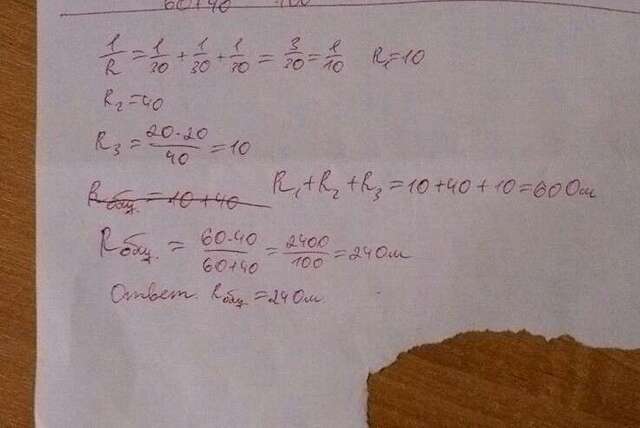 60+40 100
1/R = 1/30 + 1/30 + 1/30 = 3/30 = 1/10 R₁=10
R₂=40
R₃ = 20·20/40 = 10
Rобщ. = 10+40 R₁+R₂+R₃=10+40+10=60 Ом
Rобщ. = 60·40/60+40 = 2400/100 = 24 Ом
Ответ. Rобщ=24 Ом